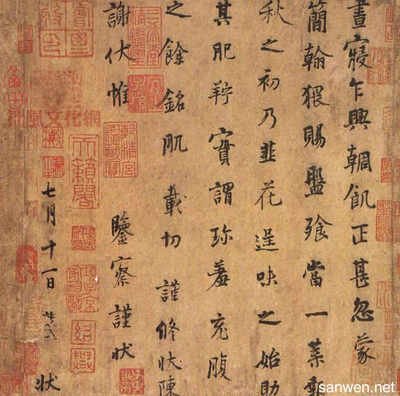 晝寢乍興輖飢正甚忽蒙
簡翰猥賜盤飧當一葉報
秋之初乃韭花逞味之始助
其肥羜實謂珍羞充腹
之餘銘肌載切謹修狀陳
謝伏惟 鑒察謹狀
七月十一日 狀
天籟閣
sanwen.net